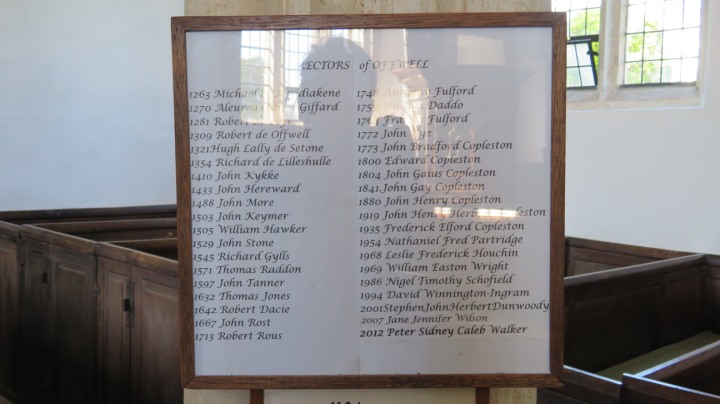 RECTORS of OFFWELL
1263 Michael
1270 Aleured Giffard
1281 Robert
1309 Robert de Offwell
1321Hugh Lally de Setone
1354 Richard de Lilleshulle
1410 John Kykke
1433 John Hereward
1488 John More
1503 John Keymer
1505 William Hawker
1529 John Stone
1545 Richard Gylls
1571 Thomas Raddon
1597 John Tanner
1632 Thomas Jones
1642 Robert Dacie
1667 John Rost
1713 Robert Rous
1748 Anthony Fulford
Daddo
Fulford
1772 John
1773 John Bradford Copleston
1800 Edward Copleston
1804 John Gaius Copleston
1841 John Gay Copleston
1880 John Henry Copleston
1919 John Henry Herbert Copleston
1935 Frederick Elford Copleston
1954 Nathaniel Fred Partridge
1968 Leslie Frederick Houchin
1969 William Easton Wright
1986 Nigel Timothy Schofield
1994 David Winnington-Ingram
2001StephenJohnHerbertDunwoody
2007 Jane Jennifer Wilson
2012 Peter Sidney Caleb Walker